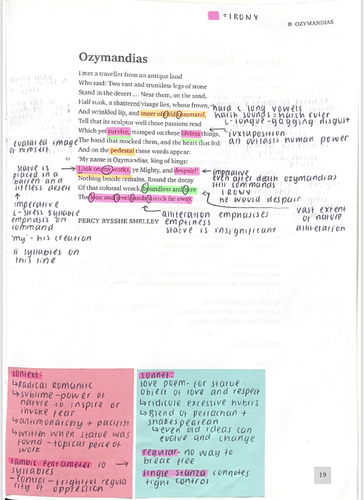 = IRONY
OZYMANDIAS
Ozymandias
I met a traveller from an antique land
Who said: Two vast and trunkless legs of stone
Stand in the desert ... Near them, on the sand,
Half sunk, a shattered visage lies, whose frown,
And wrinkled lip, and sneer of cold command,
Tell that its sculptor well those passions read
Which yet survive, stamped on these lifeless things,
The hand that mocked them, and the heart that fed:
And on the pedestal these words appear:
'My name is Ozymandias, king of kings:
Look on my works, ye Mighty, and despair!'
Nothing beside remains. Round the decay
Of that colossal wreck, boundless and bare
The lone and level sands stretch far away.
PERCY BYSSHE SHELLEY
hard c long vowels
harsh sounds = harsh ruler
tongue-gagging disgust
juxtaposition
art outlasts human power
image
of himself
statue is
placed in a
barren and
lifeless desert
imperative
stress syllable
emphasis on
command
'my' - his creation
11 syllables on
this line
imperative
even after death ozymandias
still commands
IRONY
he would despair
alliteration emphasises
emptiness
statue is insignificant
vast extent
of nature
alliteration
context:
radical romantic
sublime - power of
nature to inspire or
invoke fear
antimonarchy + pacifist
written when statue was
found - topical piece of
work
iambic pentameter 10
syllables
control - frightful regula
rity of oppression
sonnet:
love poem - for statue
object of love and respect
ridicule excessive hubris
Blend of petrachan +
shakespearean
even old ideas can
evolve and change
regular - no way to
break free
single stanza connotes
tight control
19